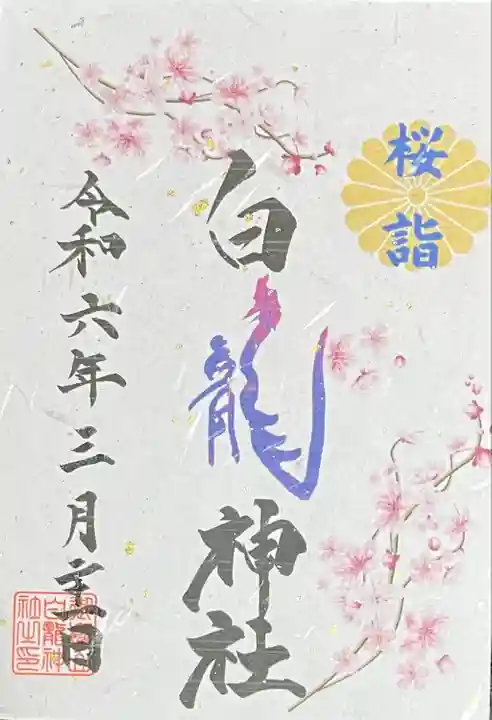 桜詣
白龍神社
令和六年三月主日
白龍神
社之印